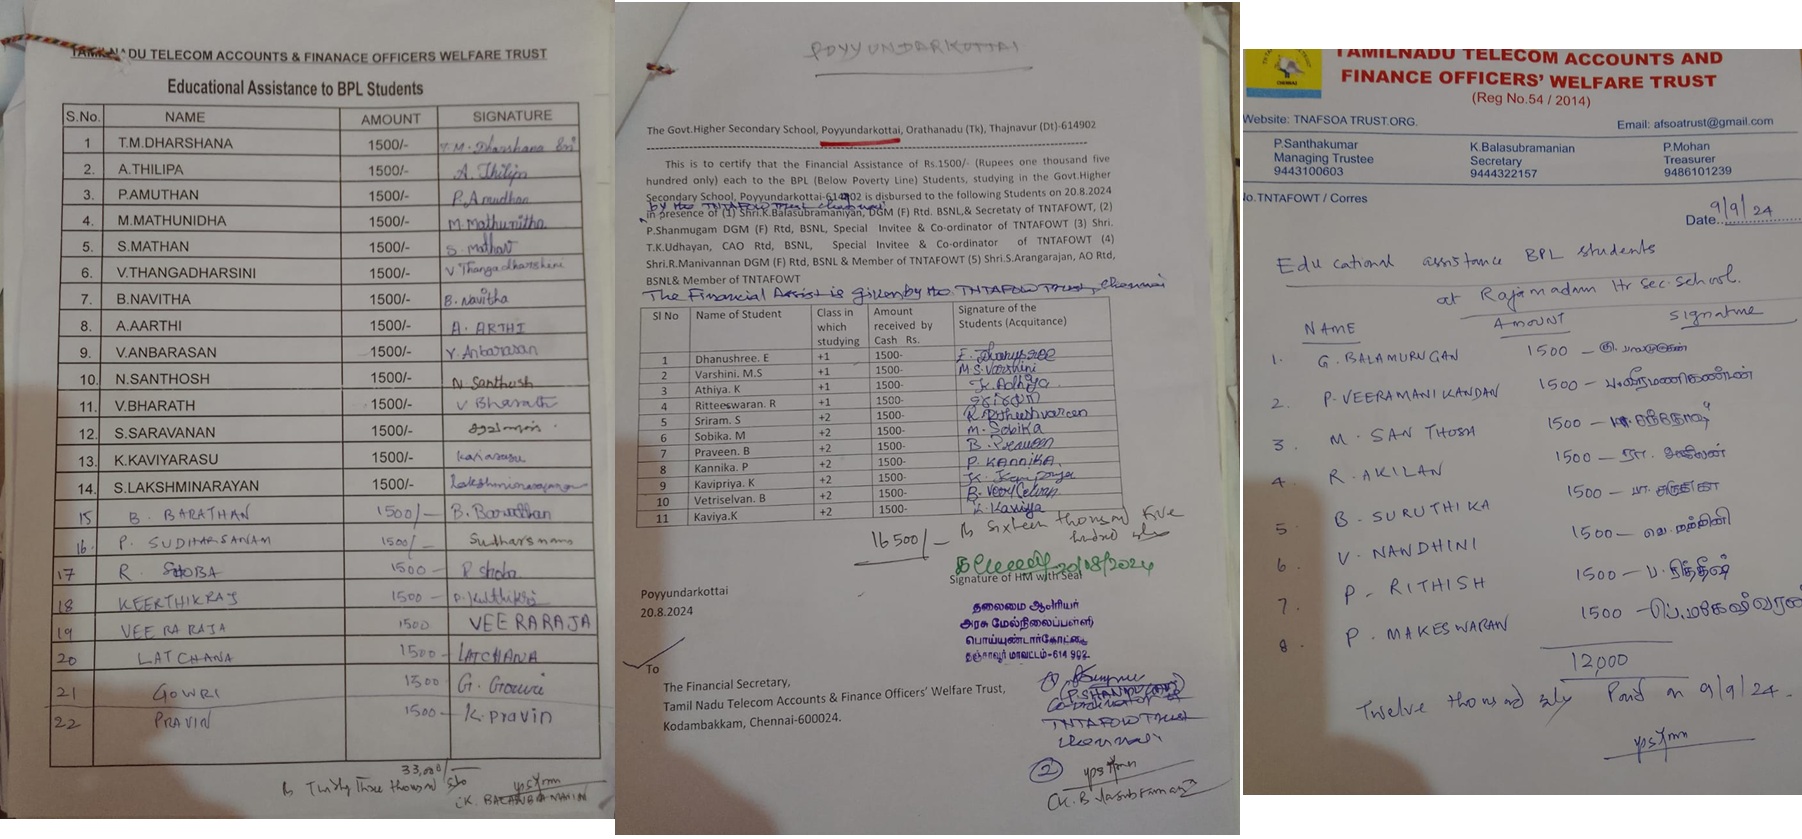 TAMIL NADU TELECOM ACCOUNTS & FINANACE OFFICERS WELFARE TRUST
Educational Assistance to BPL Students
S.No. NAME AMOUNT SIGNATURE
1 T.M.DHARSHANA 1500/- T.M. Dharshana Sri
2. A.THILIPA 1500/- A. Thilipa
3. P.AMUTHAN 1500/- P. Amudhan
4. M.MATHUNIDHA 1500/- M. Mathunitha
5. S.MATHAN 1500/- S. Mathan
6. V.THANGADHARSINI 1500/- V. Thangadharshini
7. B.NAVITHA 1500/- B. Navitha
8. A.AARTHI 1500/- A. ARTHI
9. V.ANBARASAN 1500/- V. Anbarasan
10. N.SANTHOSH 1500/- N. Santhosh
11. V.BHARATH 1500/- V Bharath
12. S.SARAVANAN 1500/-
13. K.KAVIYARASU 1500/- Kaviarasu
14. S.LAKSHMINARAYAN 1500/- Lakshminarayanan
15 B. BARATHAN 1500/- B. Barathan
16. P. SUDHARSANAM 1500/-
17 R. SHOBA 1500- R. Shoba
18 KEERTHIKRAJ 1500-
19 VEERARAJA 1500 VEERARAJA
20 LATCHANA 1500- LATCHANA
21 GOWRI 1500 G. Gowri
22 PRAVIN 1500- K. Pravin
33,000/-
Rs Thirty Three thousand only
(K. BALASUBRAMANIAN)
POYYUNDARKOTTAI
The Govt.Higher Secondary School, Poyyundarkottai, Orathanadu (Tk), Thajnavur (Dt)-614902
This is to certify that the Financial Assistance of Rs.1500/- (Rupees one thousand five
hundred only) each to the BPL (Below Poverty Line) Students, studying in the Govt.Higher
Secondary School, Poyyundarkottai-614902 is disbursed to the following Students on 20.8.2024
by the TNTAFOW Trust Chennai
in presence of (1) Shri.K.Balasubramaniyan, DGM (F) Rtd. BSNL,& Secretaty of TNTAFOWT, (2)
P.Shanmugam DGM (F) Rtd, BSNL, Special Invitee & Co-ordinator of TNTAFOWT (3) Shri.
T.K.Udhayan, CAO Rtd, BSNL, Special Invitee & Co-ordinator of TNTAFOWT (4)
Shri.R.Manivannan DGM (F) Rtd, BSNL & Member of TNTAFOWT (5) Shri.S.Arangarajan, AO Rtd,
BSNL& Member of TNTAFOWT
The Financial Assist is given by the TNTAFOW Trust, Chennai
Sl No Name of Student Class in which studying Amount received by Cash Rs. Signature of the Students (Acquitance)
1 Dhanushree. E +1 1500- E. Dhanushree
2 Varshini. M.S +1 1500- M.S. Varshini
3 Athiya. K +1 1500- K. Adhiya
4 Ritteeswaran. R +1 1500-
5 Sriram. S +2 1500-
6 Sobika. M +2 1500- M. Sobika
7 Praveen. B +2 1500- B. Praveen
8 Kannika. P +2 1500- P. KANNIKA
9 Kavipriya. K +2 1500-
10 Vetriselvan. B +2 1500-
11 Kaviya.K +2 1500- K. Kaviya
16500/- Rs Sixteen thousand five
hundred only
20/08/2024
Signature of HM with Seal
Poyyundarkottai
20.8.2024
தலைமை ஆசிரியர்
அரசு மேல்நிலைப்பள்ளி
பொய்யுண்டார்கோட்டை
தஞ்சாவூர் மாவட்டம்-614 902.
To
The Financial Secretary,
Tamil Nadu Telecom Accounts & Finance Officers' Welfare Trust,
Kodambakkam, Chennai-600024.
1)
Co-ordinator of
TNTAFOW Trust
Chennai
2
(K. Balasubramanian)
TAMILNADU TELECOM ACCOUNTS AND
FINANCE OFFICERS' WELFARE TRUST
(Reg No.54 / 2014)
Website: TNAFSOA TRUST.ORG. Email: afsoatrust@gmail.com
P.Santhakumar K.Balasubramanian P.Mohan
Managing Trustee Secretary Treasurer
9443100603 9444322157 9486101239
No.TNTAFOWT / Corres
Date..9/9/24
Educational assistance BPL students
at Rajamadam Hr Sec. School.
NAME AMOUNT Signature
1. G. BALAMURUGAN 1500 -
2. P. VEERAMANIKANDAN 1500 - ப. வீரமணிகண்டன்
3. M. SANTHOSH 1500 -
4. R. AKILAN 1500 -
5. B. SURUTHIKA 1500 -
6. V. NANDHINI 1500 -
7. P. RITHISH 1500 - ப. ரித்தீஷ்
8. P. MAKESWARAN 1500 -
12,000
Twelve thousand only Paid on 9/9/24.